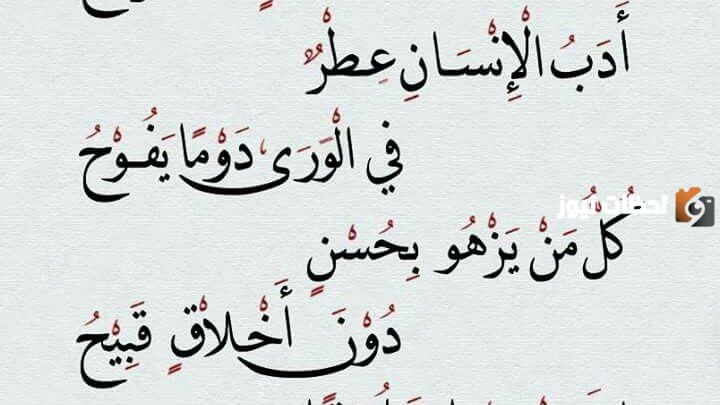 أَدَبُ الْإِنْسَانِ عِطْرٌ
فِي الْوَرَى دَوْمًا يَفُوْحُ
لحظات نيوز
كُلُّ مَنْ يَزْهُو بِحُسْنٍ
دُوْنَ أَخْلَاقٍ قَبِيْحُ